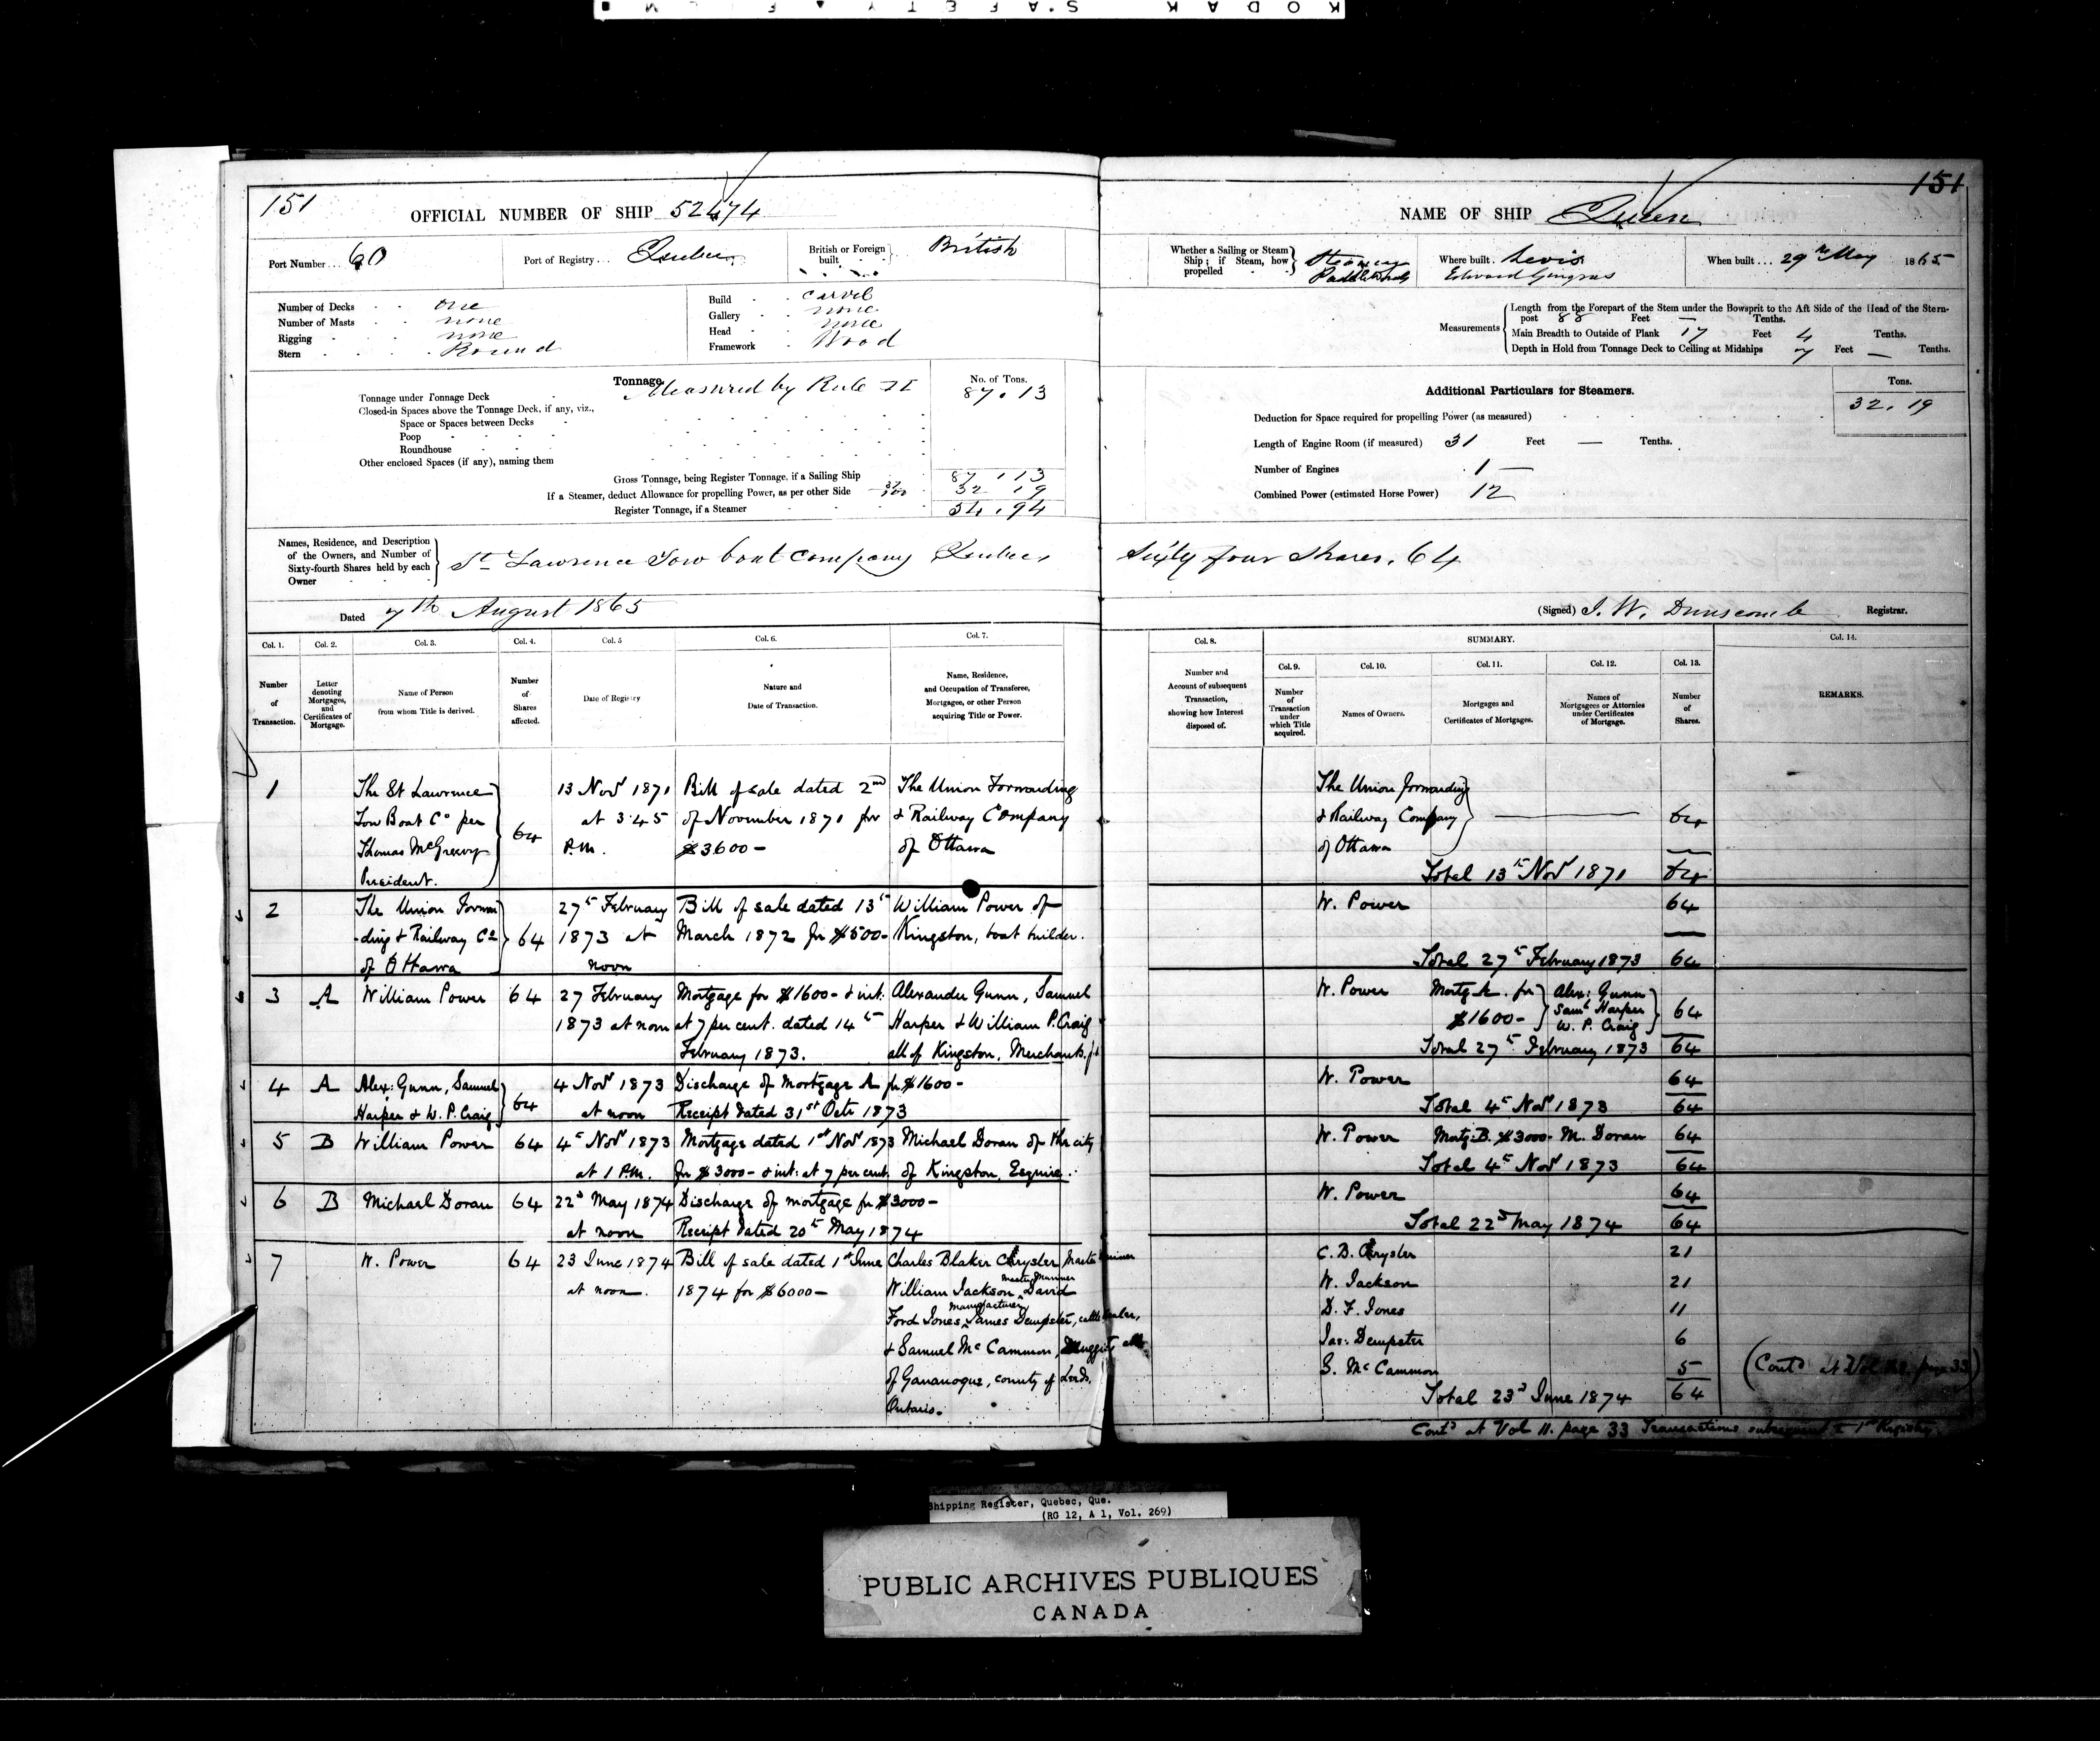 KODAK SAFETY FILM
151
OFFICIAL NUMBER OF SHIP 52474
Port Number... 60
Port of Registry... Quebec
British or Foreign built British
Number of Decks one
Number of Masts none
Rigging none
Stern Round
Build carvel
Gallery none
Head none
Framework Wood
Tonnage. Measured by Rule II
No. of Tons.
Tonnage under Tonnage Deck 87.13
Closed-in Spaces above the Tonnage Deck, if any, viz.,
Space or Spaces between Decks
Poop
Roundhouse
Other enclosed Spaces (if any), naming them
Gross Tonnage, being Register Tonnage, if a Sailing Ship 87.13
If a Steamer, deduct Allowance for propelling Power, as per other Side 37/100 32.19
Register Tonnage, if a Steamer 54.94
Names, Residence, and Description
of the Owners, and Number of
Sixty-fourth Shares held by each
Owner
St Lawrence Tow boat Company Quebec
Dated 7th August 1865
Col. 1. Col. 2. Col. 3. Col. 4. Col. 5 Col. 6. Col. 7.
Number of Transaction.
Letter denoting Mortgages, and Certificates of Mortgage.
Name of Person from whom Title is derived.
Number of Shares affected.
Date of Registry
Nature and Date of Transaction.
Name, Residence, and Occupation of Transferee, Mortgagee, or other Person acquiring Title or Power.
1 The St Lawrence 13 Novr 1871 Bill of sale dated 2nd The Union Forwarding
Tow Boat Co per 64 at 3.45 of November 1871 for & Railway Company
Thomas McGreevy P.M. $3600- of Ottawa
President.
2 The Union Forwar 27th February Bill of sale dated 13th William Power of
-ding & Railway Co 64 1873 at March 1872 for $500- Kingston, boat builder.
of Ottawa noon
3 A William Power 64 27 February Mortgage for $1600- & int: Alexander Gunn, Samuel
1873 at noon at 7 per cent. dated 14th Harper & William P. Craig
February 1873. all of Kingston, Merchants.
4 A Alex: Gunn, Samuel 64 4 Novr 1873 Discharge of Mortgage A for $1600-
Harper & W. P. Craig at noon Receipt dated 31st Octr 1873
5 B William Power 64 4th Novr 1873 Mortgage dated 1st Novr 1873 Michael Doran of the city
at 1 P.M. for $3000- & int: at 7 per cent. of Kingston, Esquire.
6 B Michael Doran 64 22d May 1874 Discharge of mortgage for $3000-
at noon Receipt dated 20th May 1874
7 W. Power 64 23 June 1874 Bill of sale dated 1st June Charles Blaker Chrysler, Master Mariner
at noon. 1874 for $6000- William Jackson, Master Mariner David
Ford Jones, manufacturer James Dempster, cattle dealer,
& Samuel McCammon, Druggist all
of Gananoque, county of Leeds,
Ontario.
151
NAME OF SHIP Queen
Whether a Sailing or Steam
Ship; if Steam, how
propelled
Steam
Paddlewheels
Where built. Levis
Edward Gingras
When built... 29th May 1865
Measurements
Length from the Forepart of the Stem under the Bowsprit to the Aft Side of the Head of the Stern-
post 88 Feet — Tenths.
Main Breadth to Outside of Plank 17 Feet 4 Tenths.
Depth in Hold from Tonnage Deck to Ceiling at Midships 7 Feet — Tenths.
Additional Particulars for Steamers.
Tons.
Deduction for Space required for propelling Power (as measured) 32.19
Length of Engine Room (if measured) 31 Feet — Tenths.
Number of Engines 1
Combined Power (estimated Horse Power) 12
Sixty four Shares. 64
(Signed) J. W. Dunscomb Registrar.
Col. 8. SUMMARY. Col. 14.
Col. 9. Col. 10. Col. 11. Col. 12. Col. 13.
Number and Account of subsequent Transaction, showing how Interest disposed of.
Number of Transaction under which Title acquired.
Names of Owners.
Mortgages and Certificates of Mortgages.
Names of Mortgagees or Attornies under Certificates of Mortgage.
Number of Shares.
REMARKS.
The Union forwarding
& Railway Company 64
of Ottawa
Total 13th Novr 1871 64
W. Power 64
Total 27th February 1873 64
W. Power Mortg. A. for $1600- Alex: Gunn Saml Harper W. P. Craig 64
Total 27th February 1873 64
W. Power 64
Total 4th Novr 1873 64
W. Power Mortg: B. $3000- M. Doran 64
Total 4th Novr 1873 64
W. Power 64
Total 22d May 1874 64
C. B. Chrysler 21
W. Jackson 21
D. F. Jones 11
Jas: Dempster 6
S. McCammon 5
Total 23d June 1874 64
(Contd at Vol page 33)
Contd at Vol 11. page 33 Transactions subsequent to 1st Registry.
Shipping Register, Quebec, Que.
(RG 12, A 1, Vol. 269)
PUBLIC ARCHIVES PUBLIQUES
CANADA